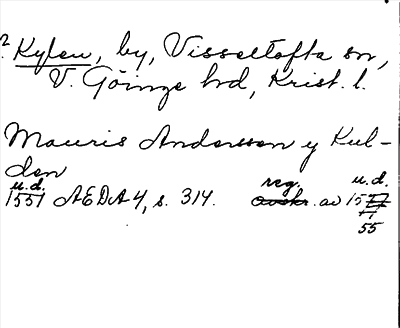 ? Kylen, by, Visseltofta sn,
V. Göinge hd, Krist. l.
Mauris Andersson y Kul-
den
u.d. reg. u.d.
1551 AEDA 4, s. 314. avskr. av 15
55